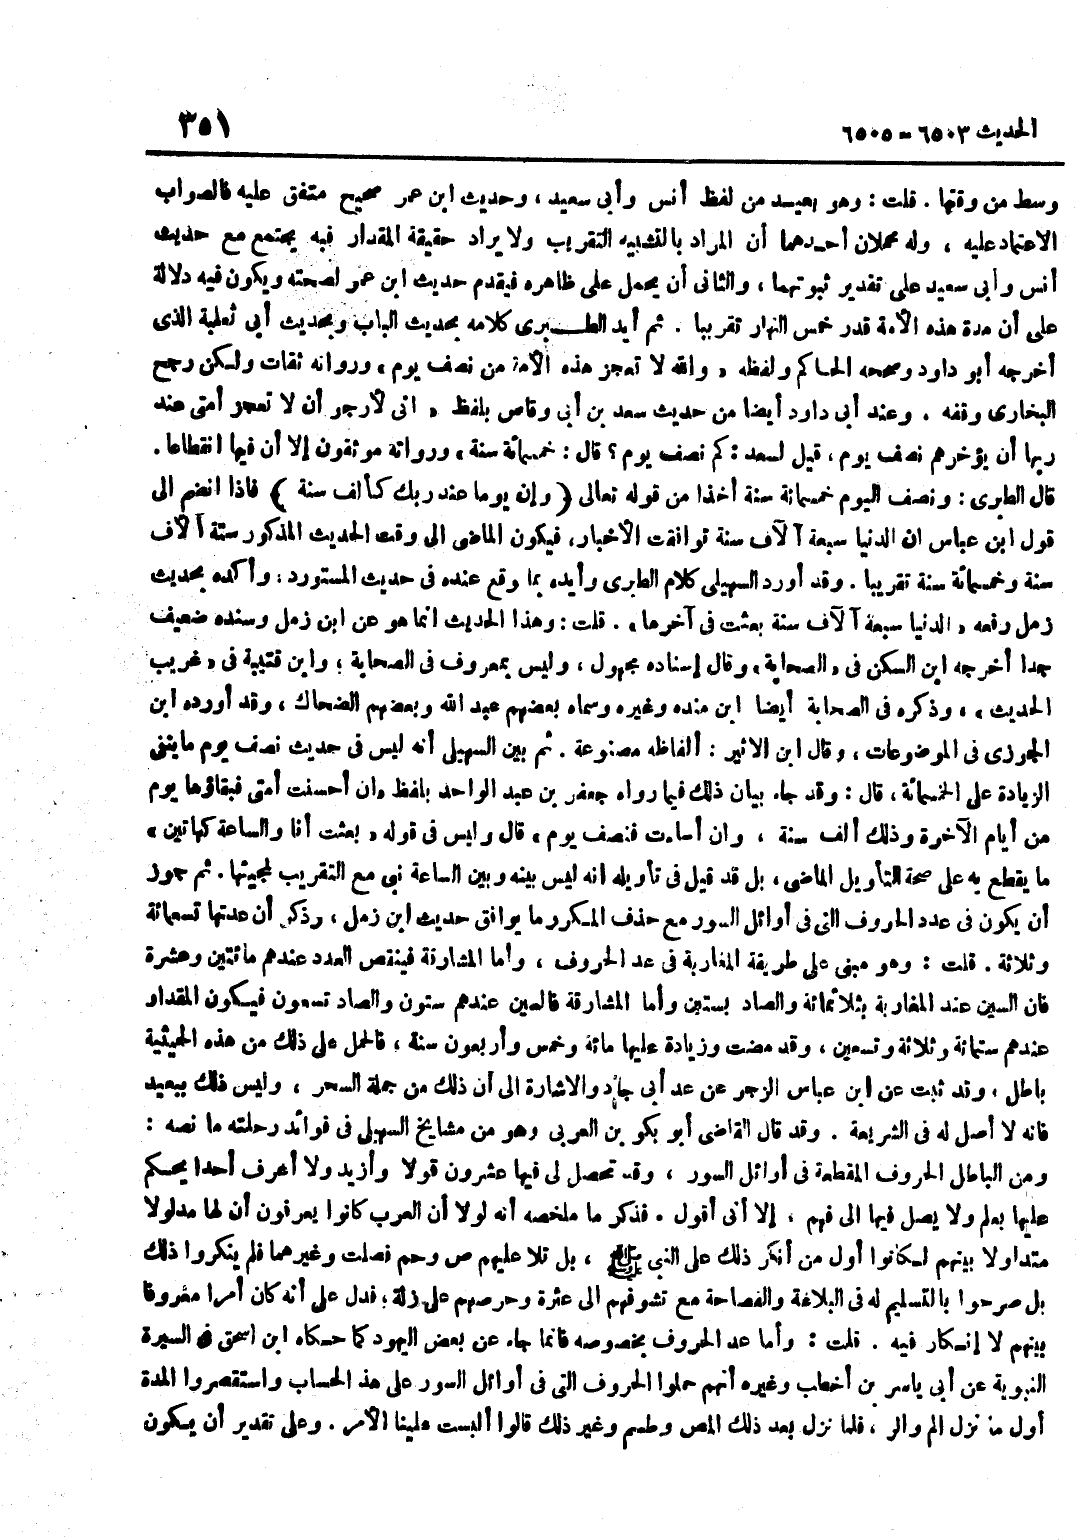 الحديث ٦٥٠٣ - ٦٥٠٥
٣٥١
وسط من وقتها . قلت : وهو بعيد من لفظ أنس وأبى سعيد ، وحديث ابن عمر صحيح متفق عليه فالصواب
الاعتماد عليه ، وله محملان أحدهما أن المراد بالتشبيه التقريب ولا يراد حقيقة المقدار فبه يجتمع مع حديث
أنس وأبى سعيد على تقدير ثبوتهما ، والثانى أن يحمل على ظاهره فيقدم حديث ابن عمر لصحته ويكون فيه دلالة
على أن مدة هذه الأمة قدر خمس النهار تقريبا . ثم أيد الطبرى كلامه بحديث الباب وبحديث أبى ثعلبة الذى
أخرجه أبو داود وصححه الحاكم ولفظه « والله لا تعجز هذه الأمة من نصف يوم » ورواته ثقات ولكن رجح
البخارى وقفه . وعند أبى داود أيضا من حديث سعد بن أبى وقاص بلفظ « انى لأرجو أن لا تعجز أمتى عند
ربها أن يؤخرهم نصف يوم ، قيل لسعد : كم نصف يوم ؟ قال : خمسمائة سنة » ورواته موثقون إلا أن فيها انقطاعا .
قال الطبرى : ونصف اليوم خمسمائة سنة أخذا من قوله تعالى ( وإن يوما عند ربك كألف سنة ) فاذا انضم الى
قول ابن عباس ان الدنيا سبعة آلاف سنة توافقت الأخبار ، فيكون الماضى الى وقت الحديث المذكور ستة آلاف
سنة وخمسمائة سنة تقريبا . وقد أورد السهيلى كلام الطبرى وأيده بما وقع عنده فى حديث المستورد ، وأكده بحديث
زمل رفعه « الدنيا سبعة آلاف سنة بعثت فى آخرها » . قلت : وهذا الحديث انما هو عن ابن زمل وسنده ضعيف
جدا أخرجه ابن السكن فى « الصحابة » وقال إسناده مجهول ، وليس بمعروف فى الصحابة ؛ وابن قتيبة فى « غريب
الحديث » ، وذكره فى الصحابة أيضا ابن منده وغيره وسماه بعضهم عبد الله وبعضهم الضحاك ، وقد أورده ابن
الجوزى فى الموضوعات ، وقال ابن الاثير : ألفاظه مصنوعة . ثم بين السهيلى أنه ليس فى حديث نصف يوم ما ينفى
الزيادة على الخمسمائة ، قال : وقد جاء بيان ذلك فيما رواه جعفر بن عبد الواحد بلفظ « ان أحسنت أمتى فبقاؤها يوم
من أيام الآخرة وذلك ألف سنة ، وان أساءت فنصف يوم » قال وليس فى قوله « بعثت أنا والساعة كهاتين »
ما يقطع به على صحة التأويل الماضى ، بل قد قيل فى تأويله انه ليس بينه وبين الساعة نبى مع التقريب لمجيئها . ثم جوز
أن يكون فى عدد الحروف التى فى أوائل السور مع حذف المكرر ما يوافق حديث ابن زمل ، وذكر أن عدتها تسعمائة
وثلاثة . قلت : وهو مبنى على طريقة المغاربة فى عد الحروف ، وأما المشارقة فينقص العدد عندهم مائتين وعشرة
فان السين عند المغاربة بثلاثمائة والصاد بستين وأما المشارقة فالسين عندهم ستون والصاد تسعون فيكون المقدار
عندهم ستمائة وثلاثة وتسعين ، وقد مضت وزيادة عليها مائة وخمس وأربعون سنة ، فالحمل على ذلك من هذه الحيثية
باطل ، وقد ثبت عن ابن عباس الزجر عن عد أبى جاد والاشارة الى أن ذلك من جملة السحر ، وليس ذلك ببعيد
فانه لا أصل له فى الشريعة . وقد قال القاضى أبو بكر بن العربى وهو من مشايخ السهيلى فى فوائد رحلته ما نصه :
ومن الباطل الحروف المقطعة فى أوائل السور ، وقد تحصل لى فيها عشرون قولا وأزيد ولا أعرف أحدا يحكم
عليها بعلم ولا يصل فيها الى فهم ، إلا أنى أقول . فذكر ما ملخصه أنه لولا أن العرب كانوا يعرفون أن لها مدلولا
متداولا بينهم لكانوا أول من أنكر ذلك على النبى ﷺ ، بل تلا عليهم ص وحم فصلت وغيرهما فلم ينكروا ذلك
بل صرحوا بالتسليم له فى البلاغة والفصاحة مع تشوفهم الى عثرة وحرصهم على زلة ، فدل على أنه كان أمرا معروفا
بينهم لا إنكار فيه . قلت : وأما عد الحروف بخصوصه فانما جاء عن بعض اليهود كما حكاه ابن اسحق فى السيرة
النبوية عن أبى ياسر بن أخطب وغيره أنهم حملوا الحروف التى فى أوائل السور على هذا الحساب واستقصروا المدة
أول ما نزل الم والر ، فلما نزل بعد ذلك المص وطسم وغير ذلك قالوا ألبست علينا الأمر . وعلى تقدير أن يكون